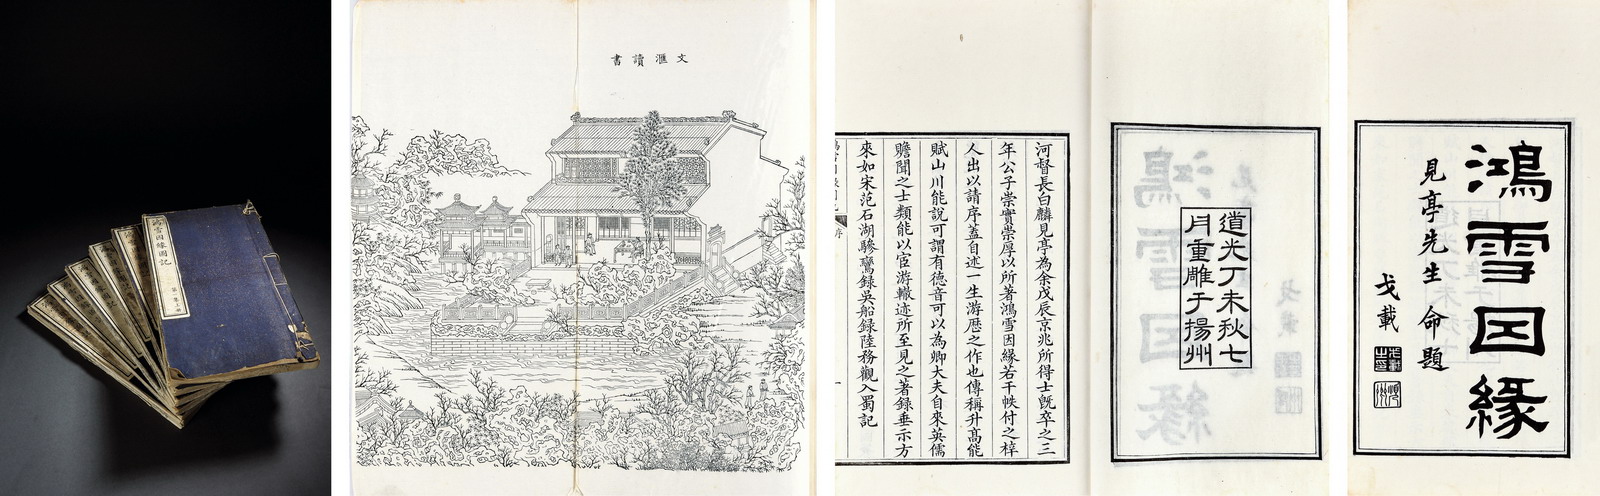 鴻雪因緣圖記
第一集上册
文滙讀書
河督長白麟見亭為余戊辰京兆所得士既卒之三
年公子崇實崇厚以所著鴻雪因緣若干帙付之梓
人出以請序蓋自述一生游歷之作也傳稱升高能
賦山川能說可謂有德音可以為卿大夫自來英儒
贍聞之士類能以宦游轍迹所至見之著錄垂示方
來如宋范石湖驂鸞錄吳船錄陸務觀入蜀記
道光丁未秋七
月重雕于揚州
鴻雪因緣
見亭先生命題
戈載